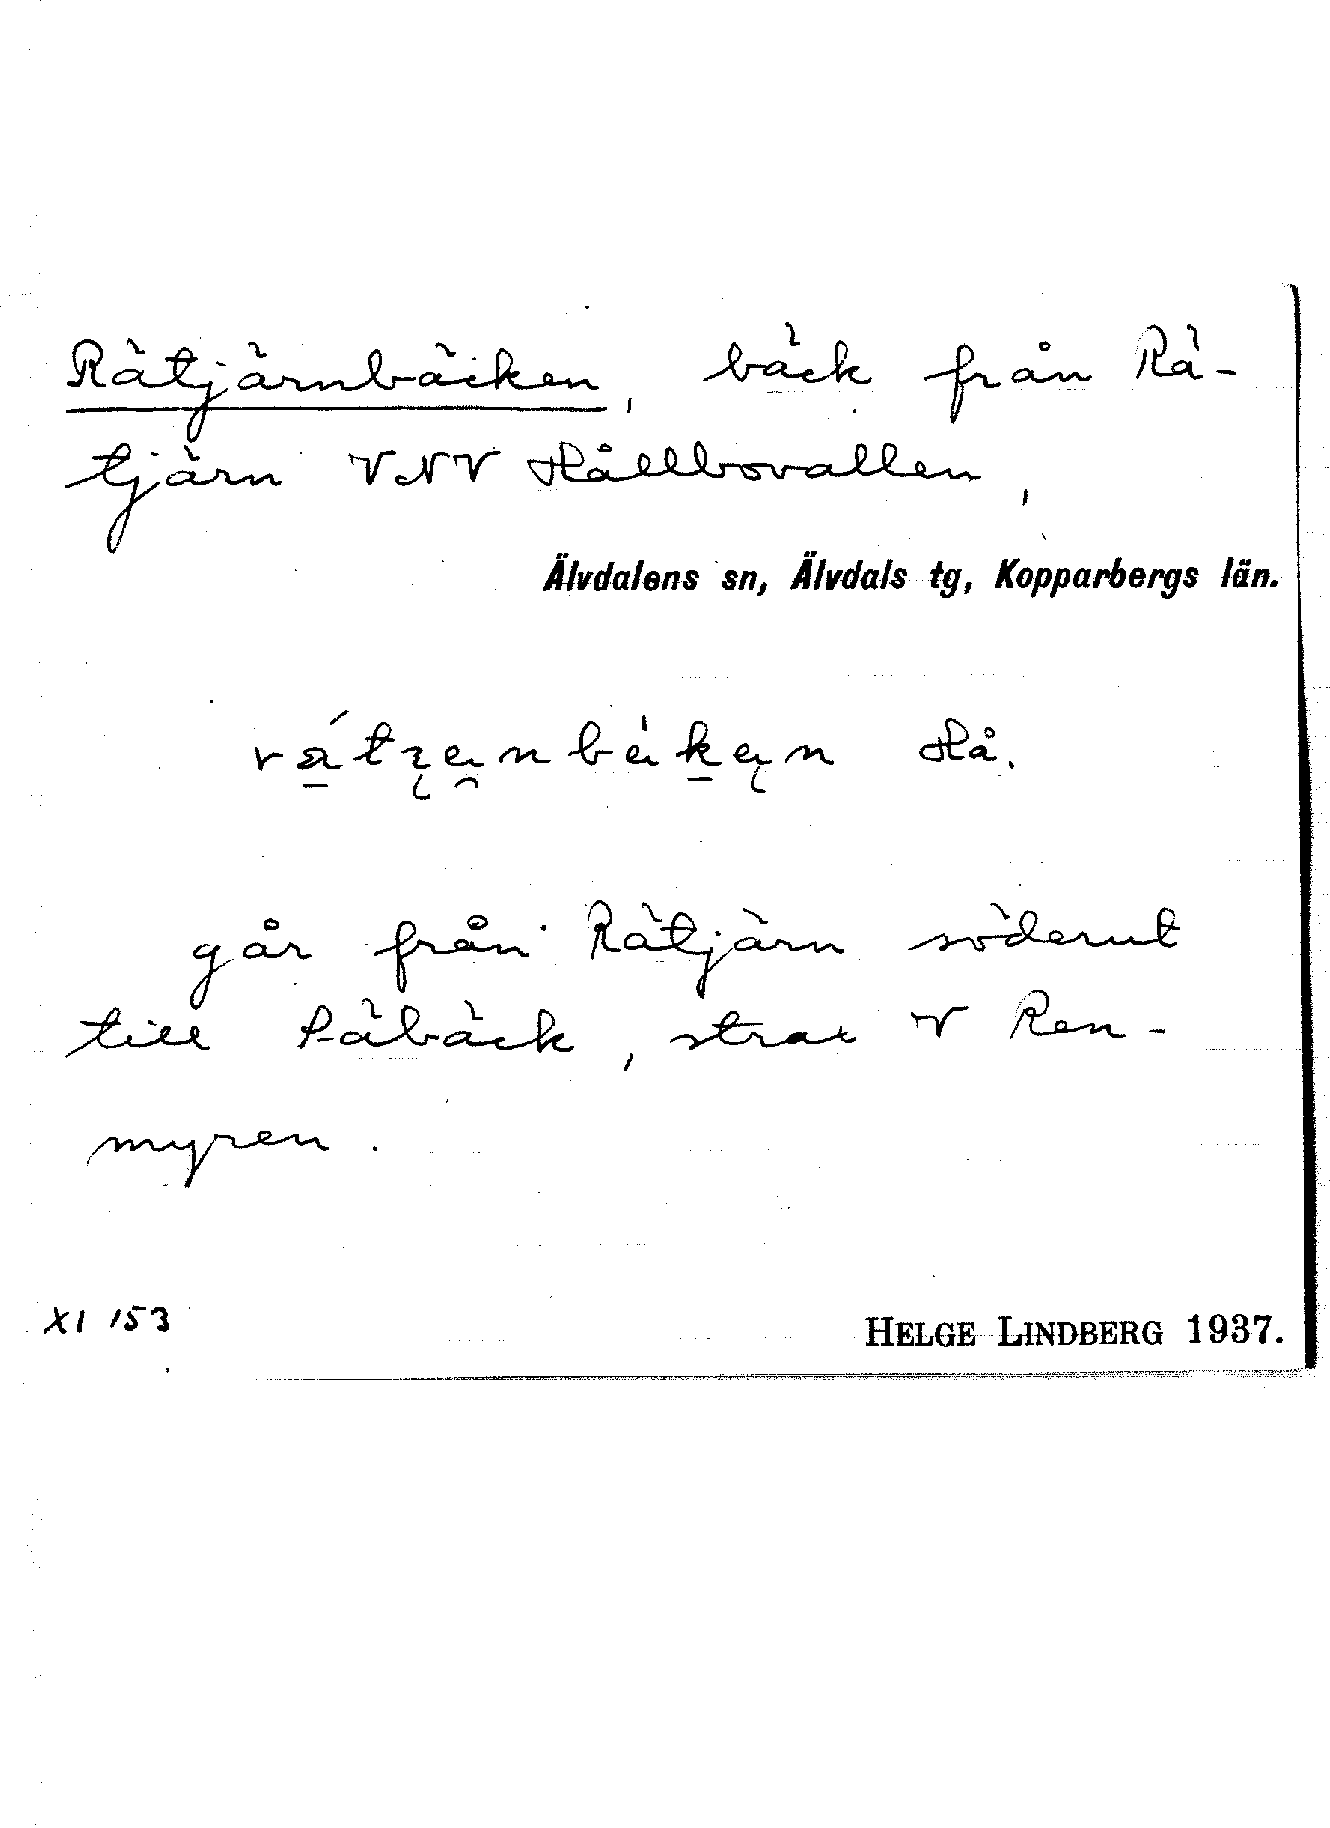 Rätjärnbäcken, bäck från Rä-
tjärn VNV Hållbovallen,
Älvdalens sn, Älvdals tg, Kopparbergs län.
Hå.
går från Rätjärn söderut
till Råbäck, strax V Ren-
myren.
XI 153
HELGE LINDBERG 1937.